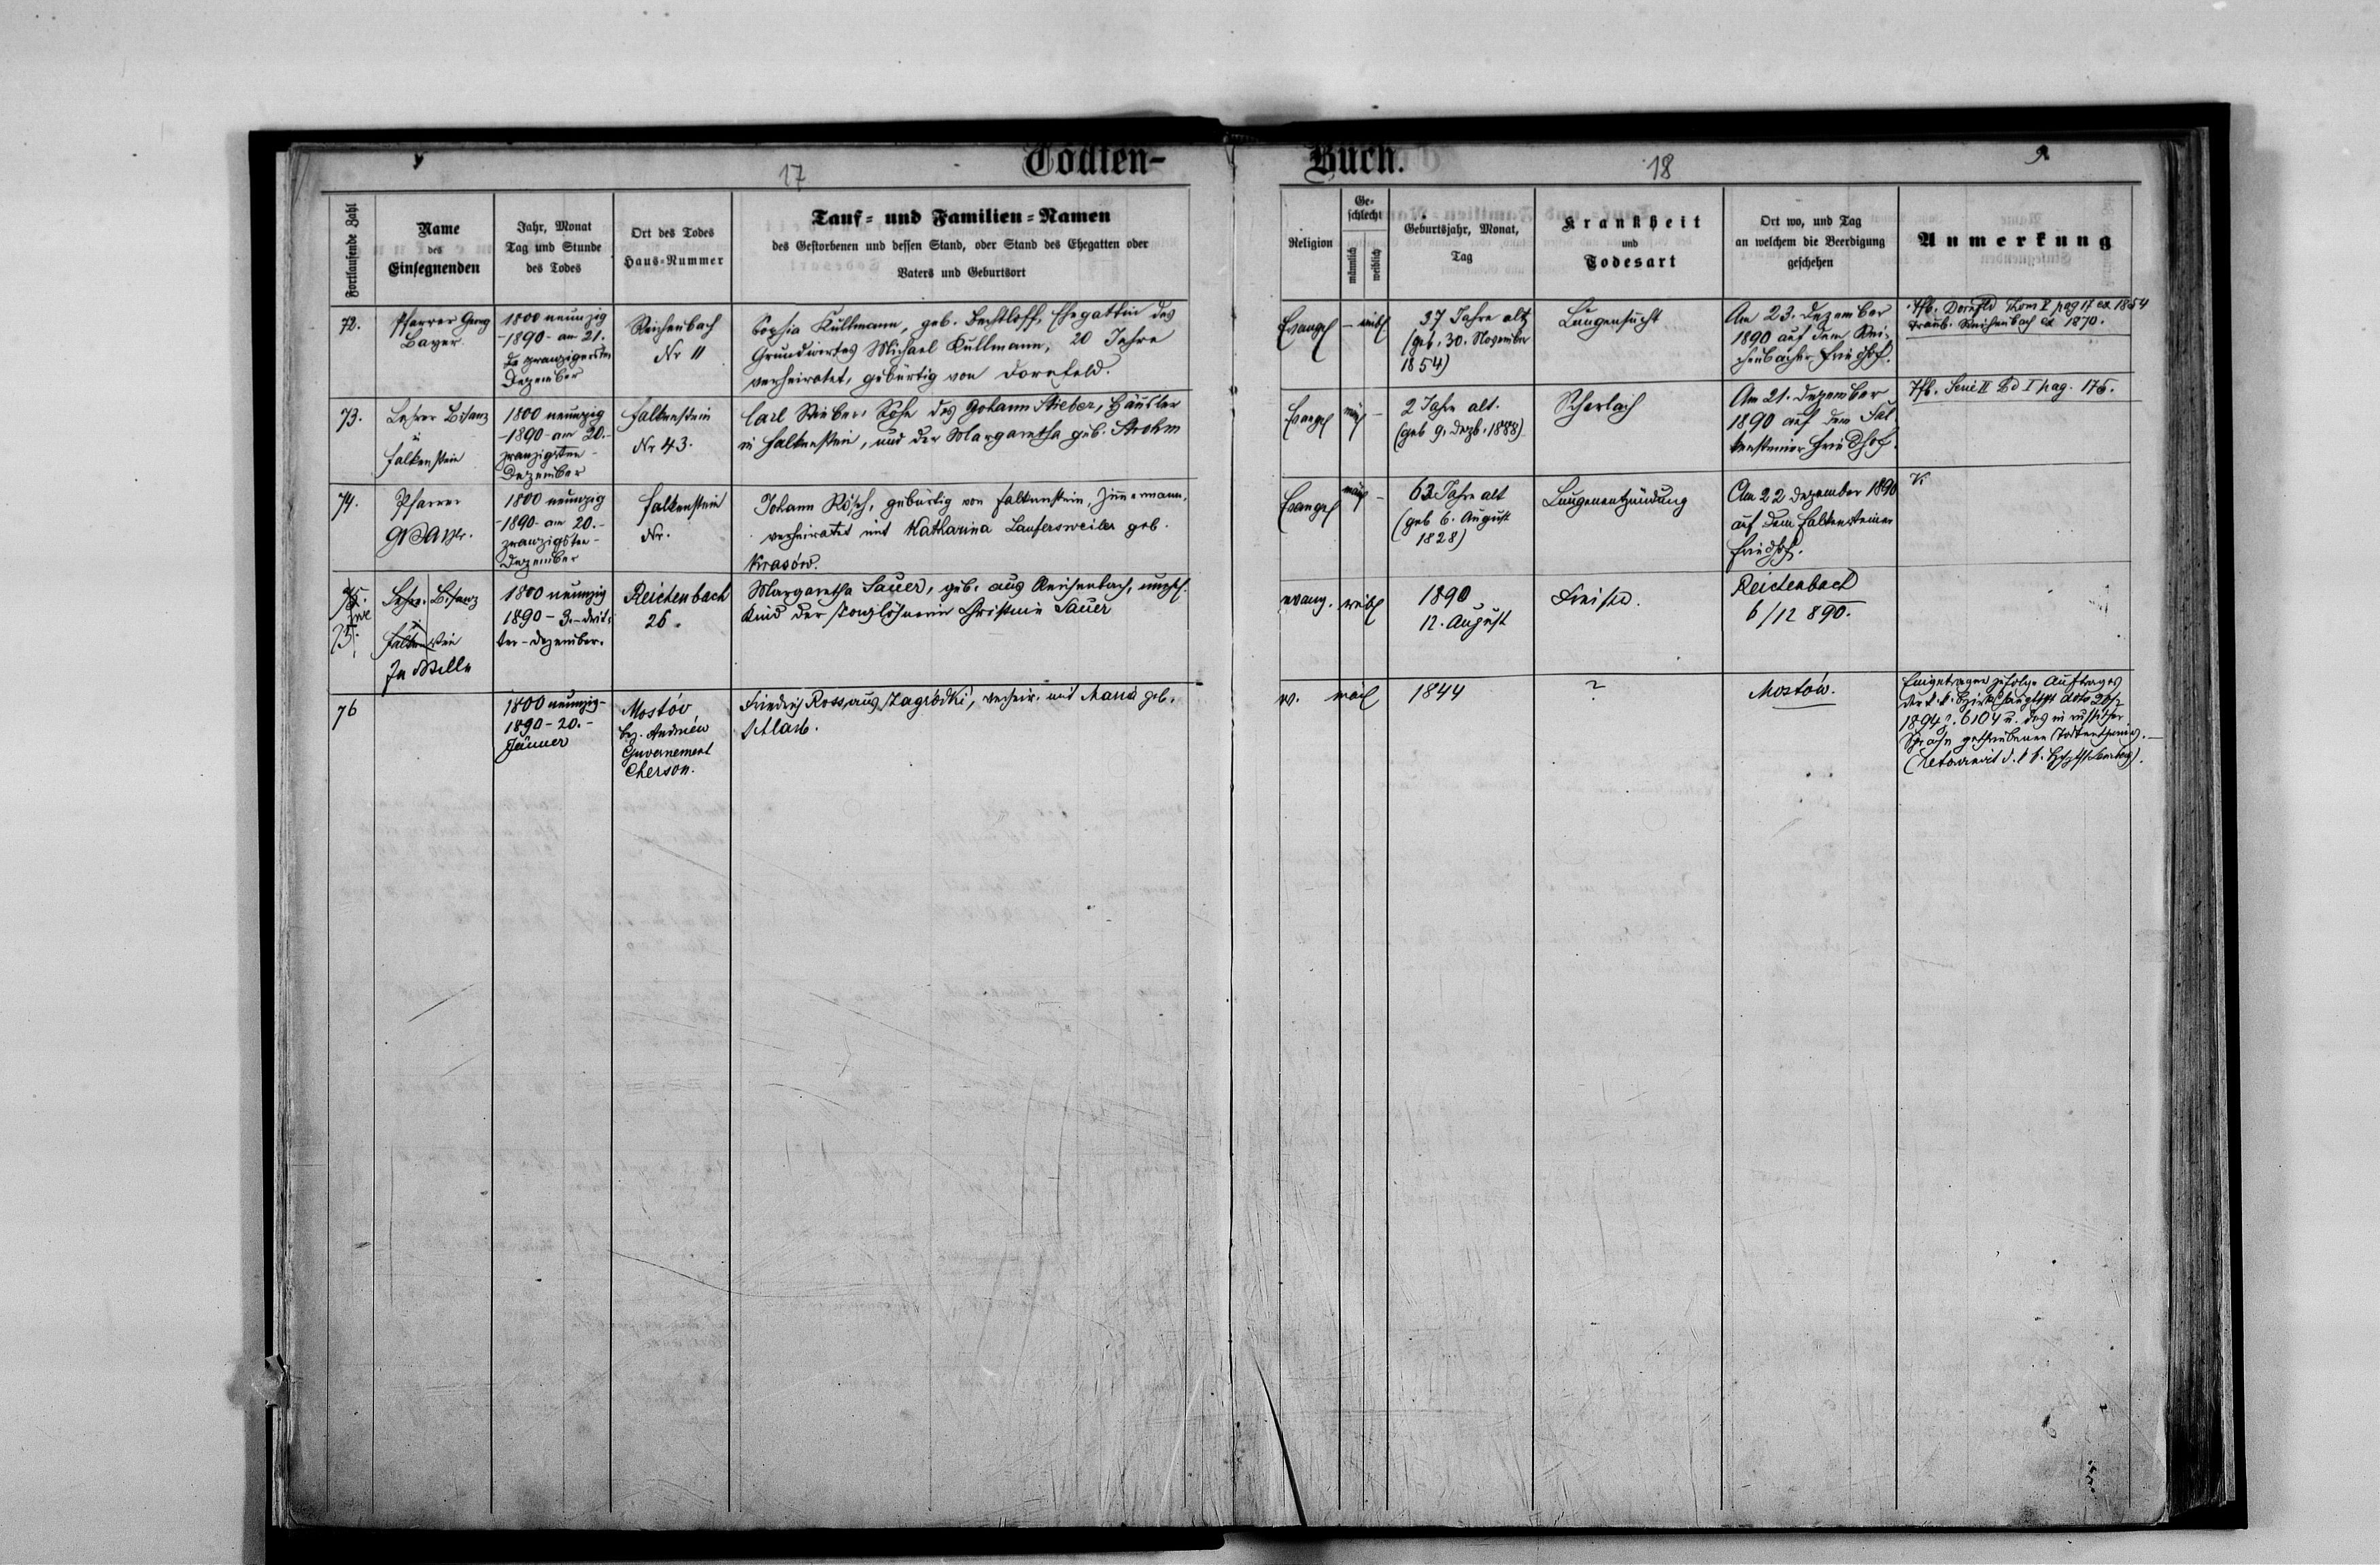 Todten-
Buch.
17
18
9
Fortlaufende Zahl
Name
des
Einsegnenden
Jahr, Monat
Tag und Stunde
des Todes
Ort des Todes
Haus=Nummer
Tauf= und Familien=Namen
des Gestorbenen und dessen Stand, oder Stand des Ehegatten oder
Vaters und Geburtsort
Religion
Ge-
schlecht
männlich
weiblich
Geburtsjahr, Monat,
Tag
Krankheit
und
Todesart
Ort wo, und Tag
an welchem die Beerdigung
geschehen
Anmerkung
72.
Pfarrer Georg
Bayer
1800 neunzig
-1890- am 21.
Dezember
Reichenbach
Nr 11
Sophia Kullmann, geb. Bechtloff, Ehegattin des
Grundwirtes Michael Kullmann, 20 Jahre
verheiratet, gebürtig von Dornfeld.
Evangel
- weibl
37 Jahre alt
(geb. 30. November
1854)
Lungensucht
Am 23. Dezember
1890 auf dem Rei-
chenbacher Friedhof.
Tfb. Dornfld Tom I pag 17 ex 1854
Traub. Reichenbach ex 1870.
73.
Lehrer Bisanz
Falkenstein
1800 neunzig
-1890- am 20.-
zwanzigsten-
Dezember
Falkenstein
Nr 43.
Carl Stieber, Sohn des Johann Stieber, Häusler
in Falkenstein, und der Margaretha geb. Strohm
Evangel
mänl -
2 Jahre alt.
(geb 9. Dezb. 1888)
Scharlach
Am 21. Dezember
1890 auf dem Fal
kensteiner Friedhof.
Tfb. Serie II Bd I pag. 175.
74.
Pfarrer
1800 neunzig
-1890- am 20.-
zwanzigsten-
Dezember
Falkenstein
Nr.
Johann Rösch, gebürtig von Falkenstein, Zimmermann,
verheiratet mit Katharina Laufersweiler geb.
Krasów.
Evangel
mänl -
62 Jahre alt
(geb 6. August
1828)
Lungenentzündung
Am 22 Dezember 1890
auf dem Falkensteiner
Friedhof.
75.
75.
Lehr. Bisanz
Falkenstein
1800 neunzig
1890 - 3. - drit-
ter - Dezember.
Reichenbach
26.
Margaretha Sauer, geb. aus Reichenbach, unehl.
Kind der Taglöhnerin Christine Sauer
evang.
weibl
1890
12. August
Fraisen.
Reichenbach
6/12 890.
76
1800 neunzig-
1890-20.-
Jänner
Mostów
bez. Andréen
Guvernement
Cherson.
Friedrich Ross, aus Zagródki, verheir. mit Maria geb.
Schlarb.
ev.
mänl
1844
?
Mostów.
Eingetragen zufolge Auftrages
der k. k. Bezirkshauptschft
1894 Z. 6104 u. des in russischer
Sprache geschriebenen Todtenscheines.-